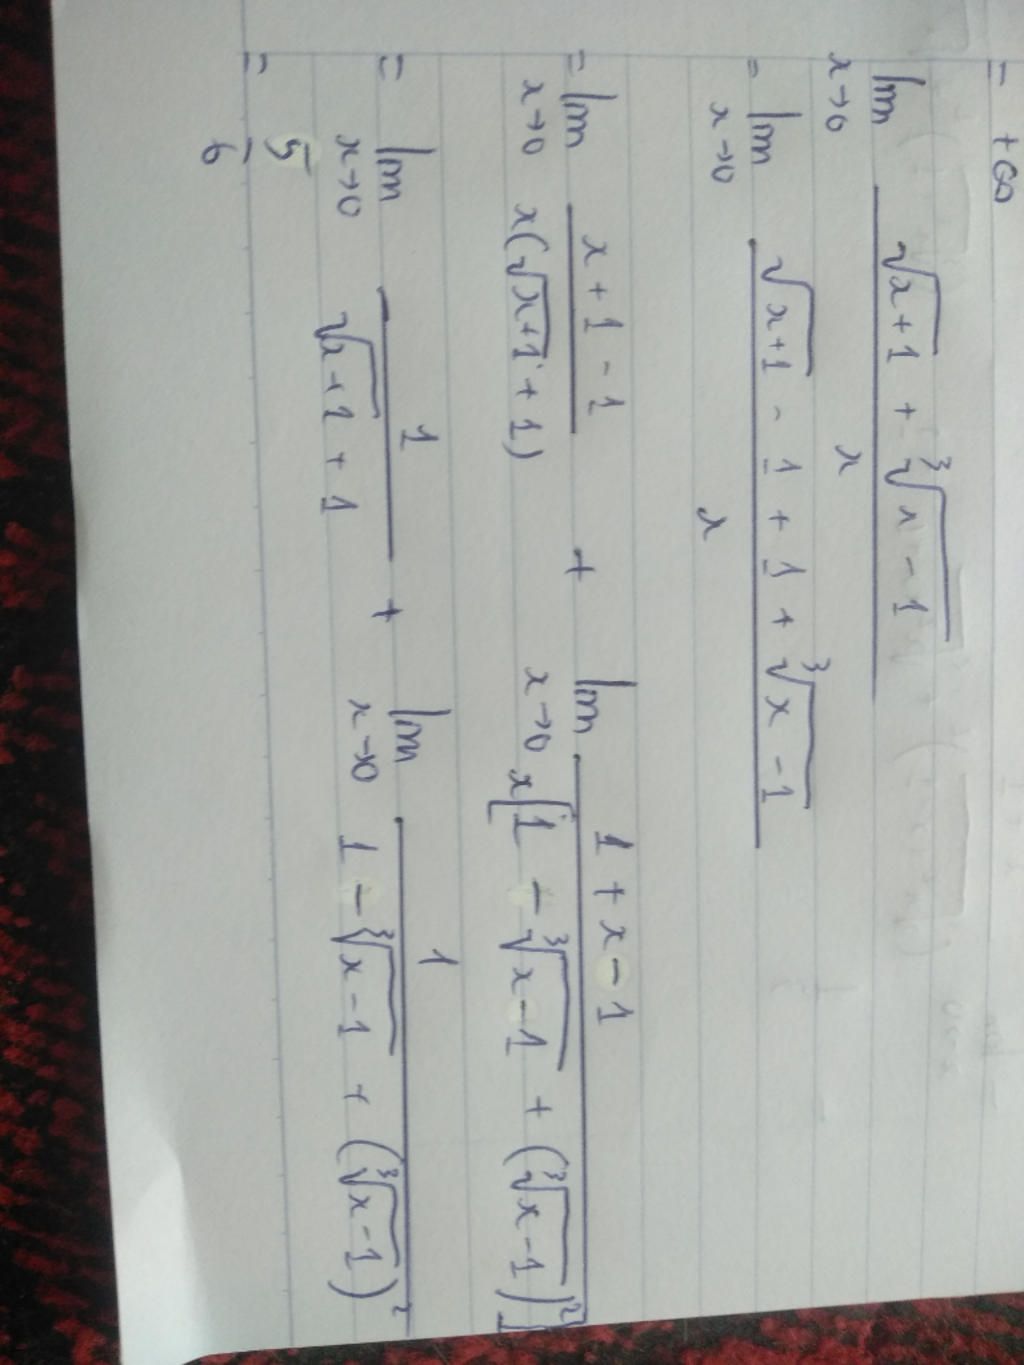 = +∞
lim x→0 (√(x+1) + ∛(x-1)) / x
= lim x→0 (√(x+1) - 1 + 1 + ∛(x-1)) / x
= lim x→0 (x+1-1) / (x(√(x+1) + 1)) + lim x→0 (1+x-1) / (x[1 - ∛(x-1) + (∛(x-1))²])
= lim x→0 1 / (√(x+1) + 1) + lim x→0 1 / (1 - ∛(x-1) + (∛(x-1))²)
= 5/6